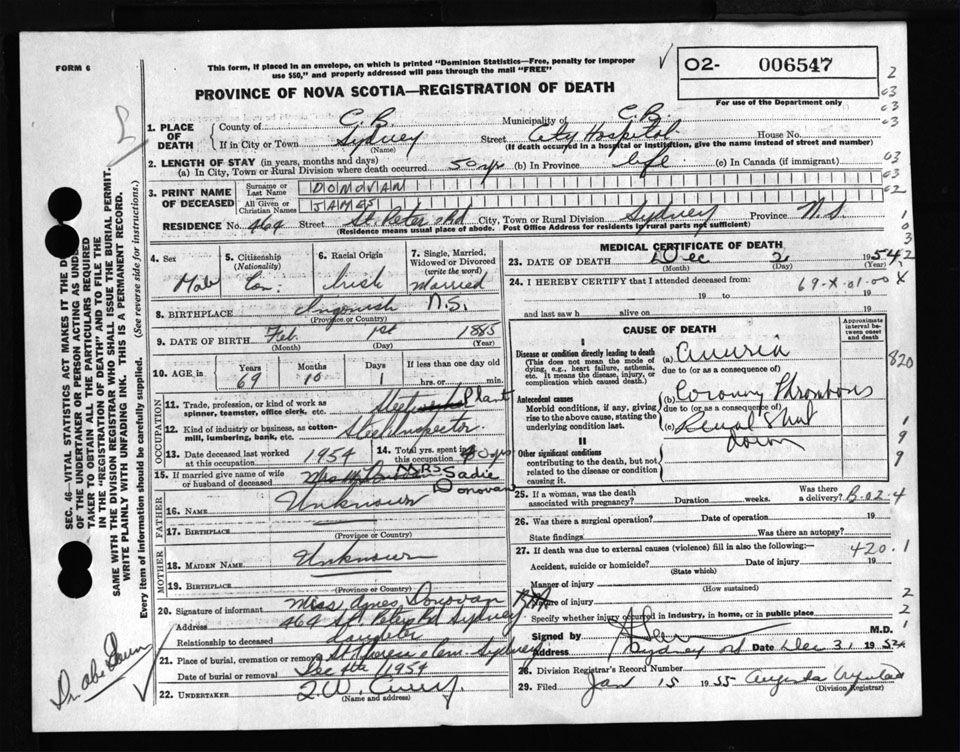 FORM 6
This form, if placed in an envelope, on which is printed "Dominion Statistics—Free, penalty for improper
use $50," and properly addressed will pass through the mail "FREE"
PROVINCE OF NOVA SCOTIA—REGISTRATION OF DEATH
02- 006547
For use of the Department only
1. PLACE OF DEATH
County of C. B. Municipality of C. B.
If in City or Town Sydney Street City Hospital House No.
(Name) (If death occurred in a hospital or institution, give the name instead of street and number)
2. LENGTH OF STAY (in years, months and days)
(a) In City, Town or Rural Division where death occurred 50 yrs (b) In Province life (c) In Canada (if immigrant)
3. PRINT NAME OF DECEASED
Surname or Last Name DONOVAN
All Given or Christian Names JAMES
RESIDENCE No. 464 Street St. Peters Rd City, Town or Rural Division Sydney Province N.S.
(Residence means usual place of abode. Post Office Address for residents in rural parts not sufficient)
4. Sex Male
5. Citizenship (Nationality) Can.
6. Racial Origin Irish
7. Single, Married, Widowed or Divorced (write the word) Married
8. BIRTHPLACE Ingonish N.S.
(Province or Country)
9. DATE OF BIRTH Feb. 1st 1885
(Month) (Day) (Year)
10. AGE in Years 69 Months 10 Days 1 If less than one day old hrs. or min.
OCCUPATION
11. Trade, profession or kind of work as
spinner, teamster, office clerk, etc. Steel Plant
12. Kind of industry or business, as cotton-
mill, lumbering, bank, etc. Steel Inspector
13. Date deceased last worked
at this occupation 1954
14. Total yrs. spent in
this occupation 40 yrs
15. If married give name of wife
or husband of deceased MRS Sadie
Donovan
FATHER
16. Name Unknown
17. Birthplace
(Province or Country)
MOTHER
18. Maiden Name Unknown
19. Birthplace
(Province or Country)
20. Signature of informant Miss Agnes Donovan
Address 464 St. Peters Rd Sydney
Relationship to deceased daughter
21. Place of burial, cremation or removal Sydney
Date of burial or removal Dec 4th 1954
22. UNDERTAKER
(Name and address)
MEDICAL CERTIFICATE OF DEATH
23. DATE OF DEATH Dec 2 1954
(Month) (Day) (Year)
24. I HEREBY CERTIFY that I attended deceased from:
19 to 19
and last saw h alive on 19
69-X-01-00 X
CAUSE OF DEATH
Approximate interval between onset and death
I
Disease or condition directly leading to death
(This does not mean the mode of
dying, e.g., heart failure, asthenia,
etc. It means the disease, injury, or
complication which caused death.)
(a) Anuria
due to (or as a consequence of)
Antecedent causes
Morbid conditions, if any, giving
rise to the above cause, stating the
underlying condition last.
(b) Coronary Thrombosis
due to (or as a consequence of)
(c) Renal Shut
down
II
Other significant conditions
contributing to the death, but not
related to the disease or condition
causing it.
820
25. If a woman, was the death
associated with pregnancy? Duration weeks. Was there
a delivery? B-02-4
26. Was there a surgical operation? Date of operation 19
State findings Was there an autopsy?
27. If death was due to external causes (violence) fill in also the following:—
420.1
Accident, suicide or homicide? Date of injury 19
(State which)
Manner of injury
(How sustained)
Nature of injury
Specify whether injury occurred in industry, in home, or in public place
Signed by M.D.
Address Sydney Date Dec 31 1954
28. Division Registrar's Record Number
29. Filed Jan 15 1955
(Division Registrar)
SEC. 46—VITAL STATISTICS ACT MAKES IT THE
OF THE UNDERTAKER OR PERSON ACTING AS UNDER-
TAKER TO OBTAIN ALL THE PARTICULARS REQUIRED
IN THE "REGISTRATION OF DEATH" AND TO FILE THE
SAME WITH THE DIVISION REGISTRAR WHO SHALL ISSUE THE BURIAL PERMIT.
WRITE PLAINLY WITH UNFADING INK. THIS IS A PERMANENT RECORD.
Every item of information should be carefully supplied. (See reverse side for instructions.)